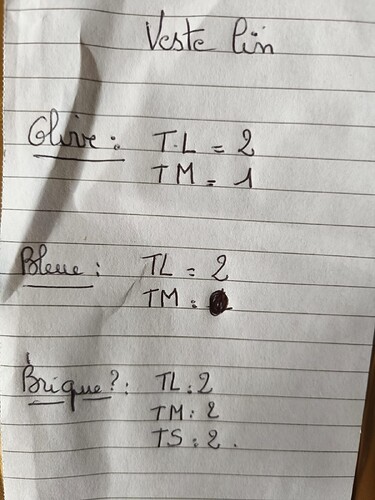 Veste lin
Olive : T.L = 2
TM = 1
Bleue : TL = 2
TM :
Brique? : TL : 2
TM : 2
TS : 2.